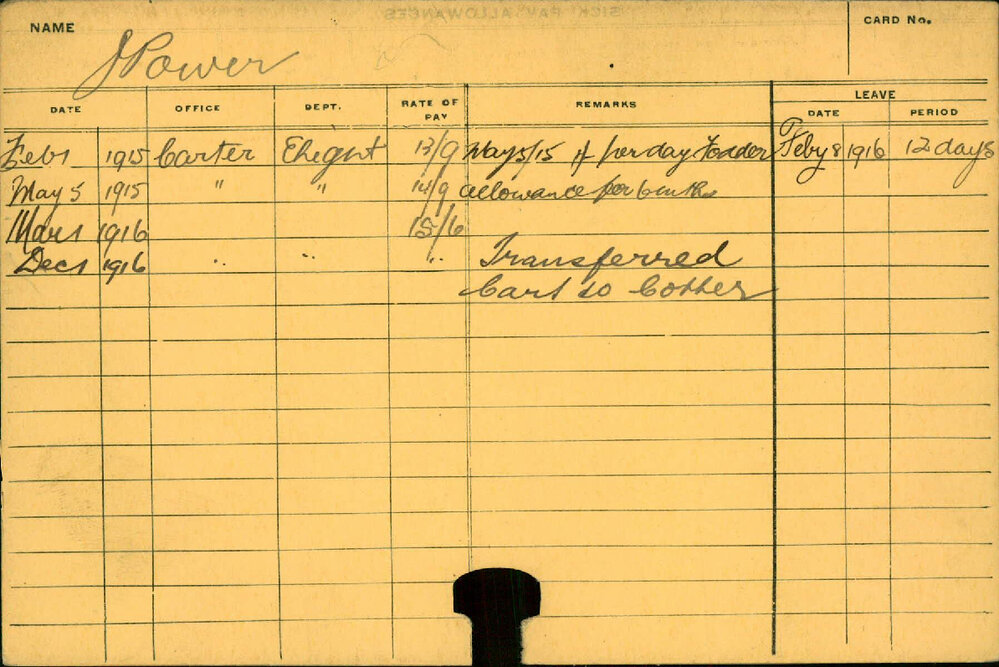 SICK PAY ALLOWANCES
NAME
J Power
CARD No.
DATE OFFICE DEPT. RATE OF PAY REMARKS LEAVE
DATE PERIOD
Feb 1 1915 Carter 13/9 May 5/15 per day Fodder Feby 8 1916 12 days
May 5 1915 " " 14/9 allowance for 6 mths
Mar 1 1916 15/6
Dec 1 1916 " " " Transferred
Cart to